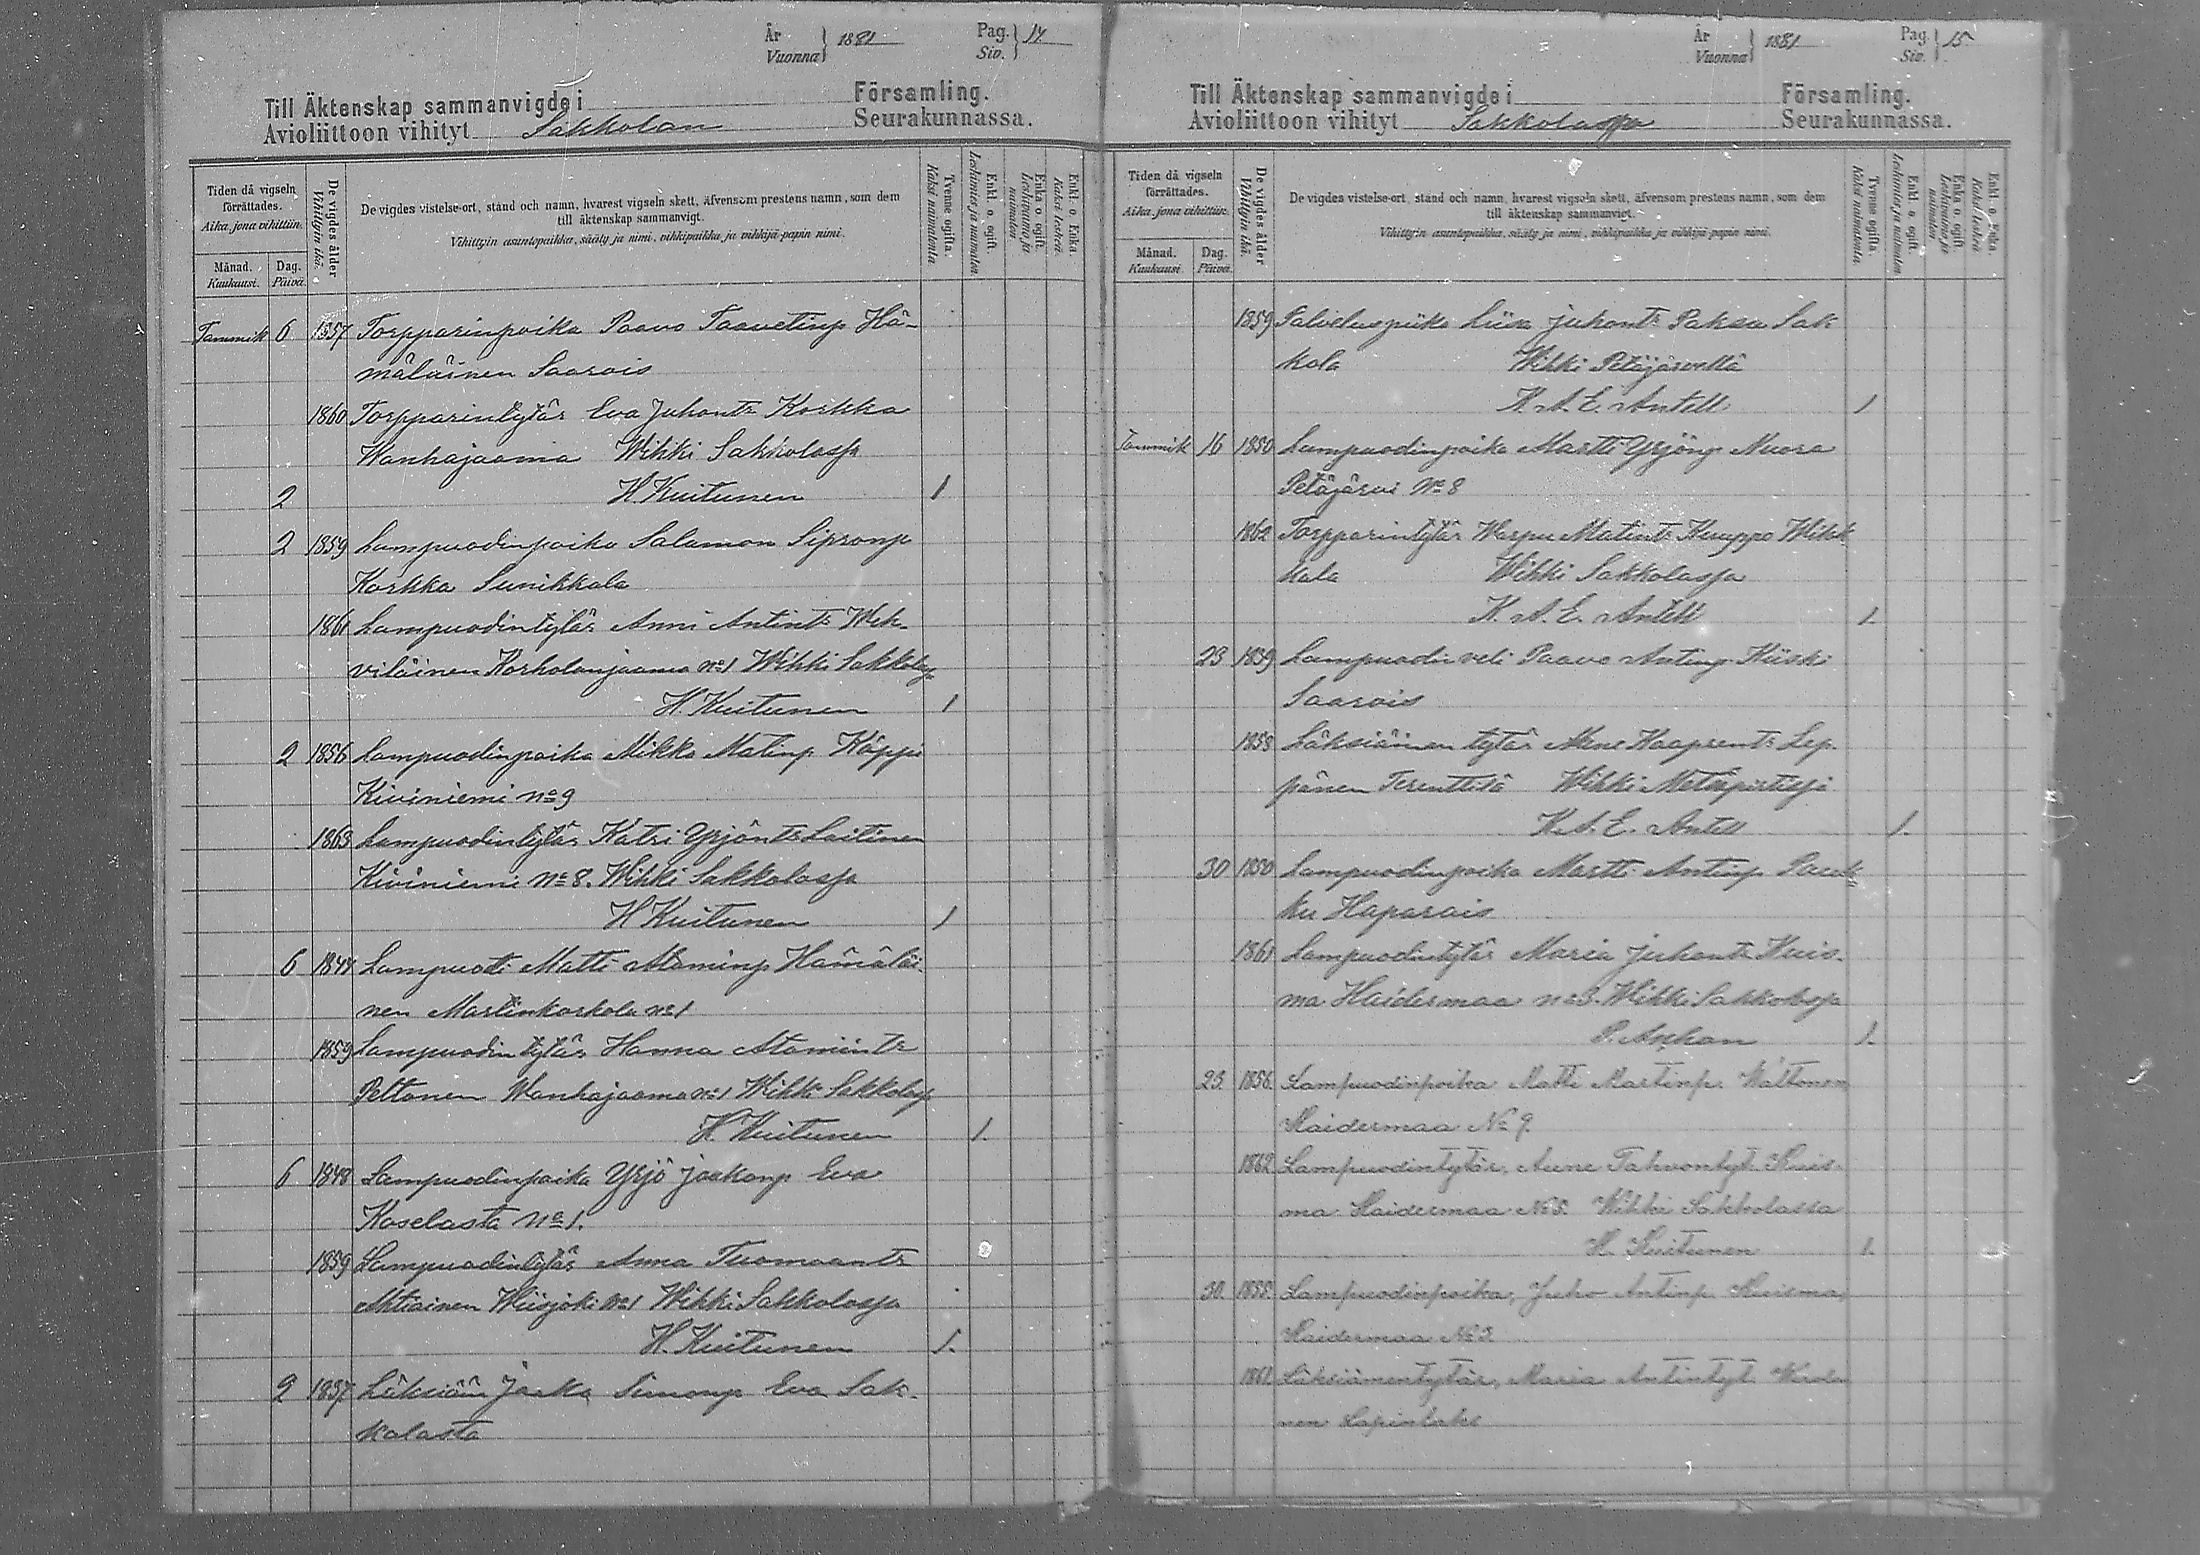 År
Vuonna } 1881
Pag.
Siv. } 14
Till Äktenskap sammanvigde i Församling.
Avioliittoon vihityt Sakkolan Seurakunnassa.
Tiden då vigseln förrättades.
Aika, jona vihittiin.
Månad.
Kuukausi.
Dag.
Päivä.
De vigdes ålder
Vihittyin ikä.
De vigdes vistelse-ort, stånd och namn, hvarest vigseln skett, äfvensom prestens namn, som dem
till äktenskap sammanvigt.
Vihittyin asuntopaikka, sääty ja nimi, vihkipaikka ja vihkijä-papin nimi.
Tvenne ogifta.
Kaksi naimatonta.
Enkl. o. ogift.
Leskimies ja naimaton.
Enka o. ogift.
Leskivaimo ja naimaton.
Enkl. o. Enka.
Kaksi leskeä.
Tammik 6 1857 Torpparinpoika Paavo Taavetinp Hä-
mäläinen Saarois
1860 Torpparintytär Eva Juhont: Korkka
Wanhajaama Wihki Sakkolassa
2 H Kuitunen 1
2 1859 Lampuodinpoika Salamon Sipronp
Korkka Sunikkala
1861 Lampuodintytär Anni Antint: Weh-
viläinen Korholanjaama No 1 Wihki Sakkolas
H. Kuitunen 1
2 1856 Lampuodinpoika Mikko Matinp Käppi
Kiviniemi No 9
1863 Lampuodintytär Katri Yrjönt: Laitinen
Kiviniemi No 8. Wihki Sakkolassa
H Kuitunen 1
6 1844 Lampuoti Matti Ataminp Hämäläi
nen Martinkorkola No 1
1859 Lampuodin tytär Hanna Atamint:
Peltonen Wanhajaama No 1 Wihki Sakkolas
H. Kuitunen 1.
6 1848 Lampuodinpoika Yrjö Jaakonp Eva
Koselasta No 1.
1859 Lampuodintytär Anna Tuomaant:
Ahtiainen Wiisjoki No 1 Wihki Sakkolassa
H. Kuitunen 1.
2 1857 Läksiäin Jaakko Simonp Eva Sak-
kolasta
År
Vuonna } 1881
Pag.
Siv. } 15
Till Äktenskap sammanvigde i Församling.
Avioliittoon vihityt Sakkolassa Seurakunnassa.
Tiden då vigseln förrättades.
Aika, jona vihittiin.
Månad.
Kuukausi.
Dag.
Päivä.
De vigdes ålder
Vihittyin ikä.
De vigdes vistelse-ort, stånd och namn, hvarest vigseln skett, äfvensom prestens namn, som dem
till äktenskap sammanvigt.
Vihittyin asuntopaikka, sääty ja nimi, vihkipaikka ja vihkijä-papin nimi.
Tvenne ogifta.
Kaksi naimatonta.
Enkl. o. ogift.
Leskimies ja naimaton.
Enka o. ogift.
Leskivaimo ja naimaton.
Enkl. o. Enka.
Kaksi leskeä.
1859 Palveluspiika Liisa Juhont: Paksu Sak
kola Wihki Petäjärvellä
K. A. E. Antell 1
Tammik 16 1850 Lampuodinpoika Martti Yrjönp Nuora
Petäjärvi No 8
1862 Torpparintytär Warpu Matint: Kuuppo Wilk
kala Wihki Sakkolassa
K. A. E. Antell 1.
23 1859 Lampuodin veli Paavo Antinp Kiiski
Saarois
1858 Läksiäinen tytär Anne Kaaprent: Lep-
pänen Terenttilä Wihki Metsäpirtissä
K. A. E. Antell 1.
30 1850 Lampuodinpoika Martti Antinp Pauk-
ku Haparais
1861 Lampuodintytär Maria Juhont: Kuis-
ma Haidermaa No 3. Wihki Sakkolassa
P. Ankan 1.
23. 1856. Lampuodinpoika Matti Martinp. Wättönen
Haidermaa No 9.
1862 Lampuodintytär, Anne Tahvontyt. Kuis-
ma Haidermaa No 5. Wihki Sakkolassa
H. Kuitunen 1.
30. 1858. Lampuodinpoika, Juho Antinp. Kuisma,
Haidermaa No 3
1861. Läksiämentytär, Maria Antintyt. Wirola
nen Lapinlaks